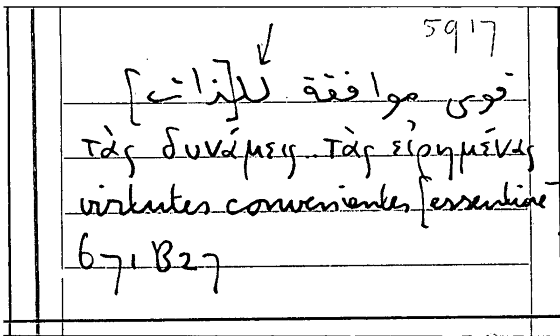 5917
قوى موافقة لل[ذات]
τὰς δυνάμεις τὰς εἰρημένας
virtutes convenientes [essentiae
671 B27